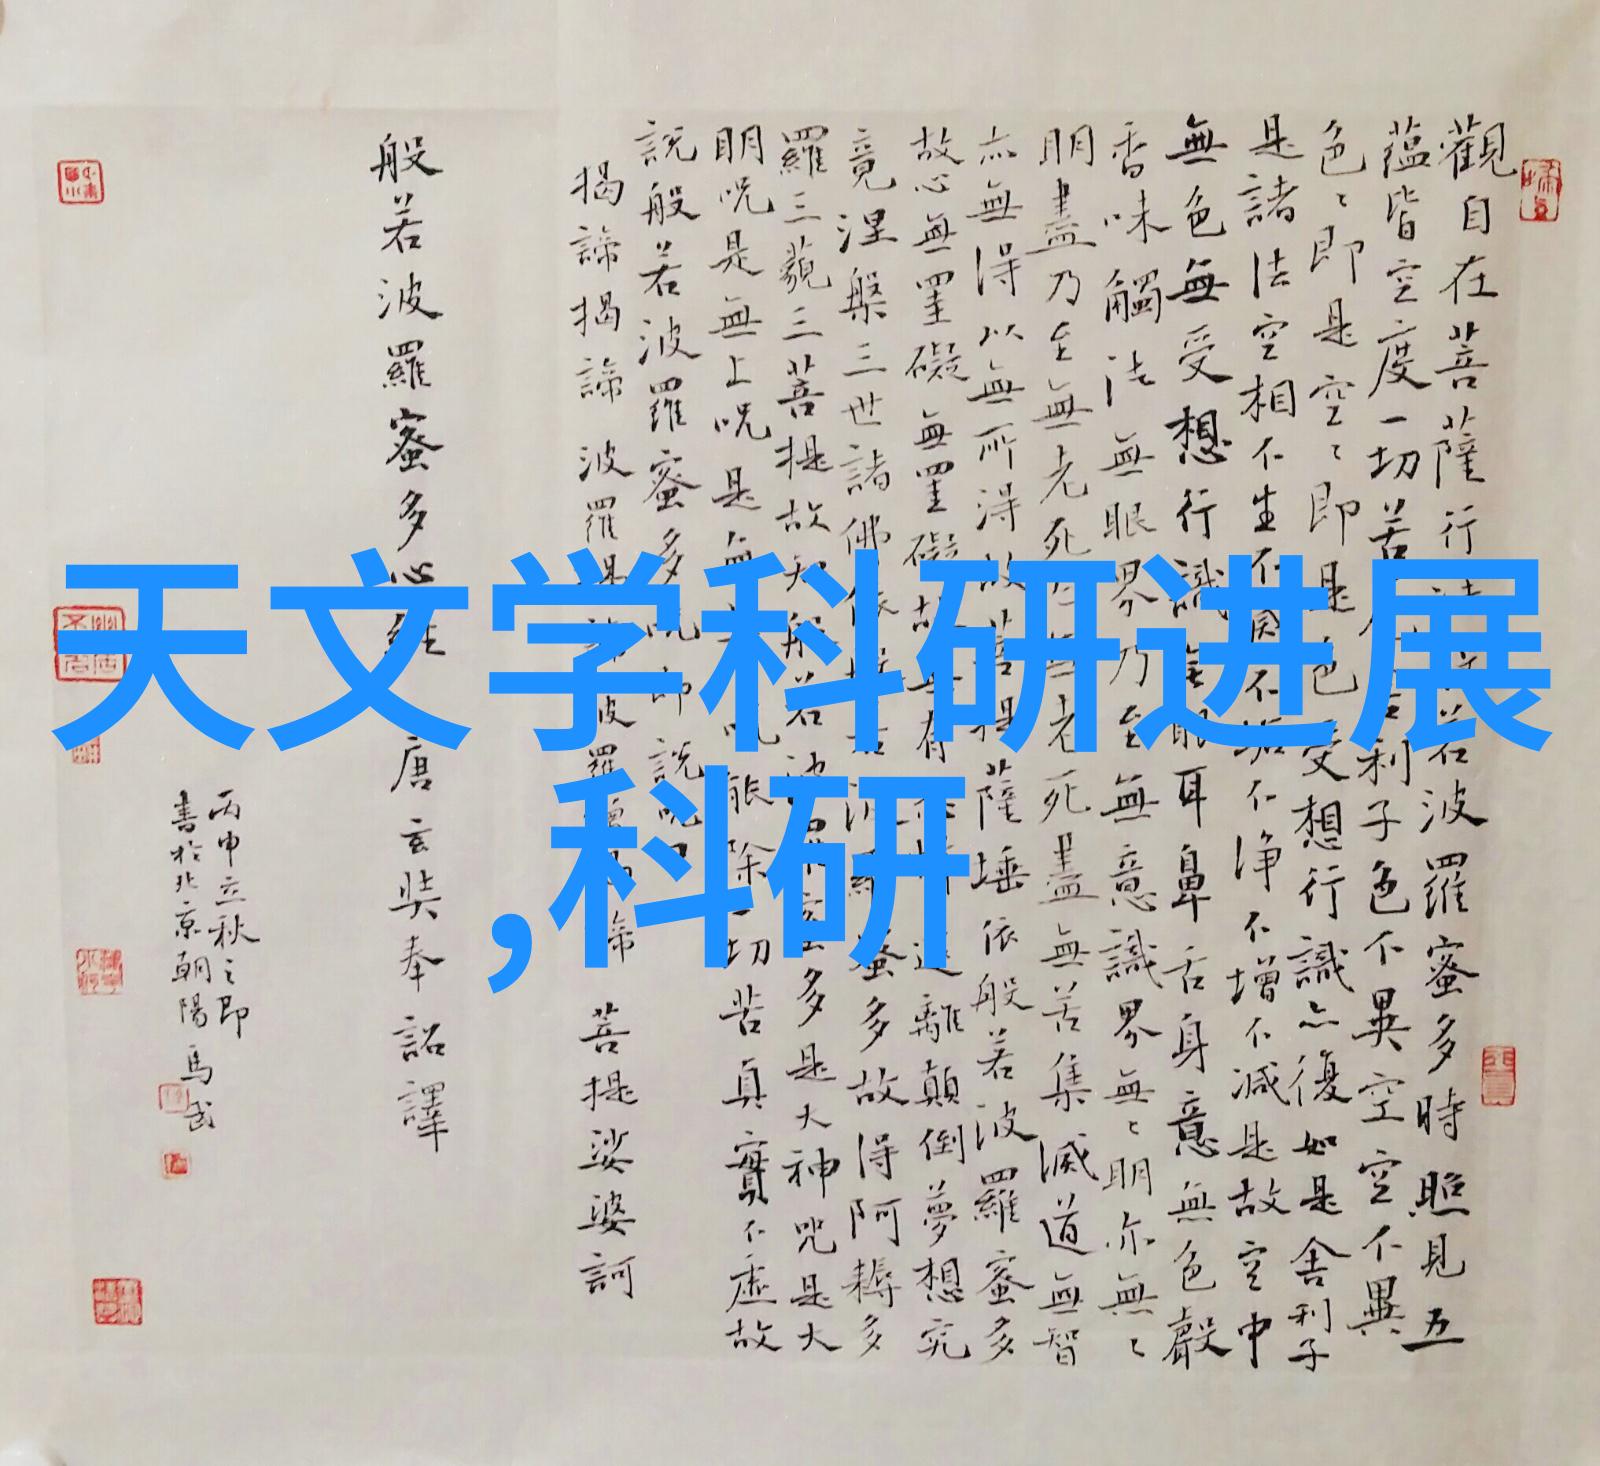 觀自在菩薩行
波羅蜜多時照見五
蘊皆空度一切苦
利子色不異空空不異
色〻即是空〻即是色受想行識亦復如是舍利子
是諸法空相不生不
不淨不增不減是故空中
無色無受想行識無眼耳鼻舌身意無色聲
香味觸法無眼界乃至無意識界無〻明亦無〻
明盡乃至無老死
老死盡無苦集滅道無智
亦無得以無所得故菩提薩埵依般若波羅蜜多
故心無罣礙無罣礙故無有
遠離顛倒夢想究
竟涅槃三世諸佛依
多故得阿耨多
羅三藐三菩提故知般若波
多是大神咒是大
明咒是無上咒是無
能除一切苦真實不虛故
說般若波羅蜜多咒即說咒
揭諦揭諦 波羅揭諦
波羅
菩提娑婆訶
般若波羅蜜多心經 唐玄奘奉詔譯
丙申立秋之即
書於北京朝陽 馬武
天文学科研进展
,科研